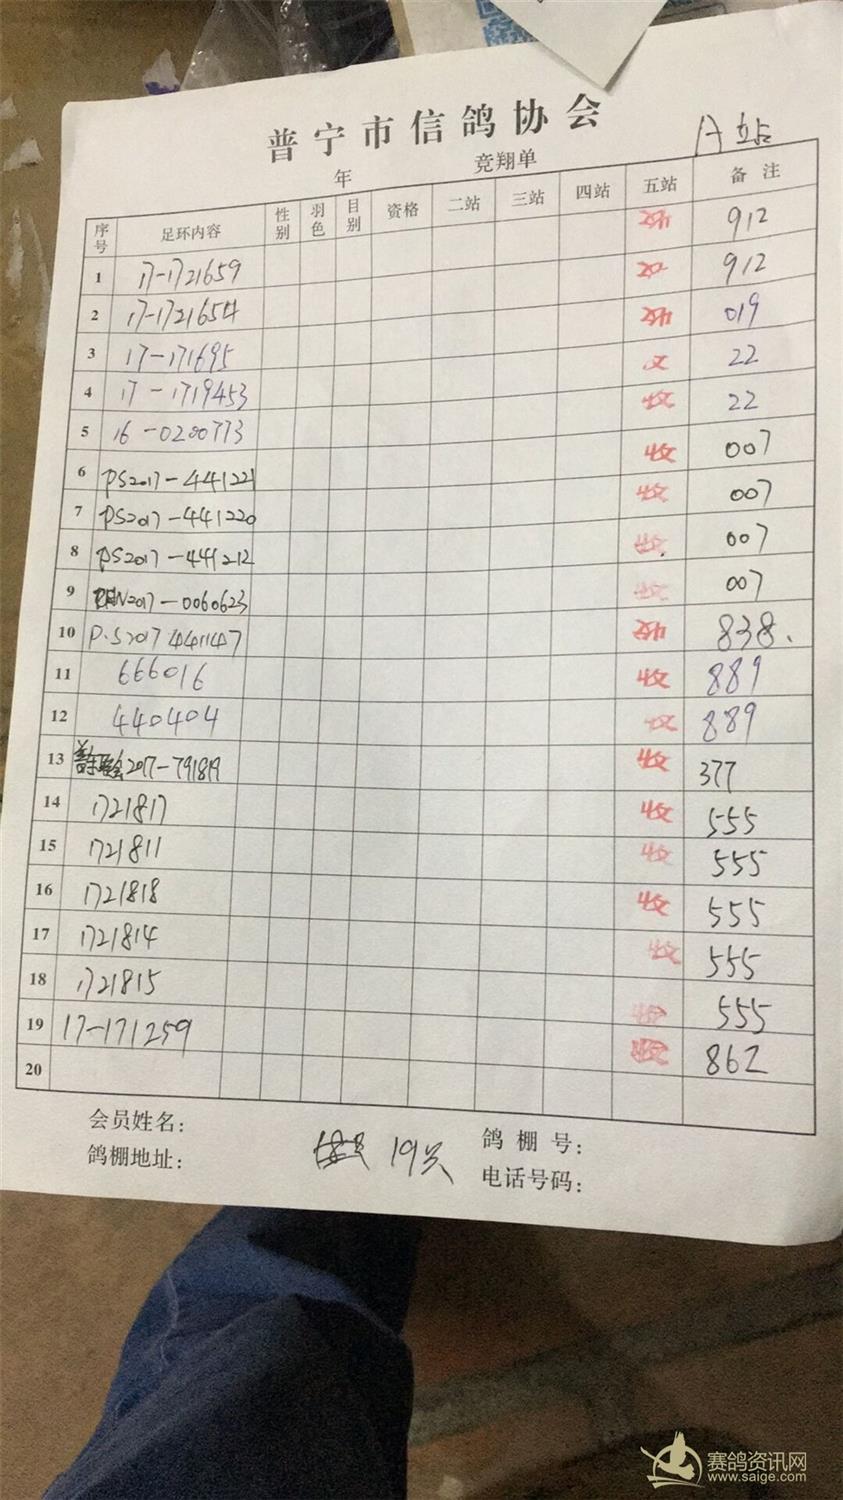 普宁市信鸽协会
A站
年 竞翔单
序号 足环内容 性别 羽色 目别 资格 二站 三站 四站 五站 备注
1 17-1721659 收 912
2 17-1721654 912
3 17-171695 收 019
4 17-1719453 22
5 16-0200773 收 22
6 PS2017-441221 收 007
7 PS2017-441220 收 007
8 PS2017-441212 收 007
9 2017-0060623 收 007
10 P.S2017 4411147 收 838.
11 666016 收 889
12 440404 收 889
13 2017-791819 收 377
14 1721817 收 555
15 1721811 收 555
16 1721818 收 555
17 1721814 收 555
18 1721815 收 555
19 17-171259 收 862
20
会员姓名: 鸽棚号:
鸽棚地址: 19只 电话号码:
赛鸽资讯网
www.saige.com